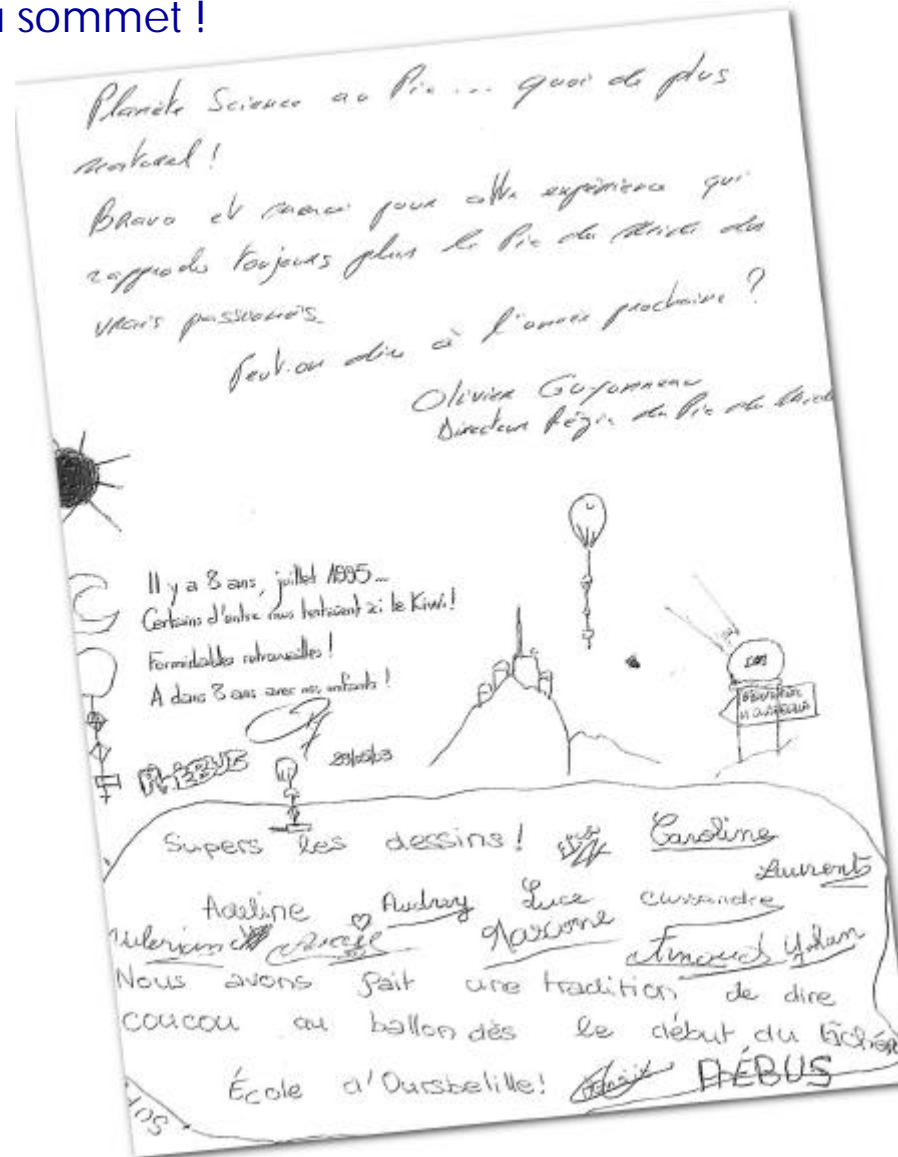 sommet !
Planète Science au Pic... quoi de plus
naturel !
Bravo et merci pour cette expérience qui
rapproche toujours plus le Pic du Midi des
vrais passionnés.
Peut-on dire à l'année prochaine ?
Olivier
Directeur Régie du Pic du Midi
Il y a 8 ans, juillet 1995...
Certains d'entre nous testaient ici le Kiwi !
Formidables retrouvailles !
A dans 8 ans avec nos enfants !
29/05/03
Supers les dessins ! Caroline
Laurent
Adeline Audrey Luce Cassandre
Yohan
Nous avons fait une tradition de dire
coucou au ballon dès le début du
École d'Oursbelille !